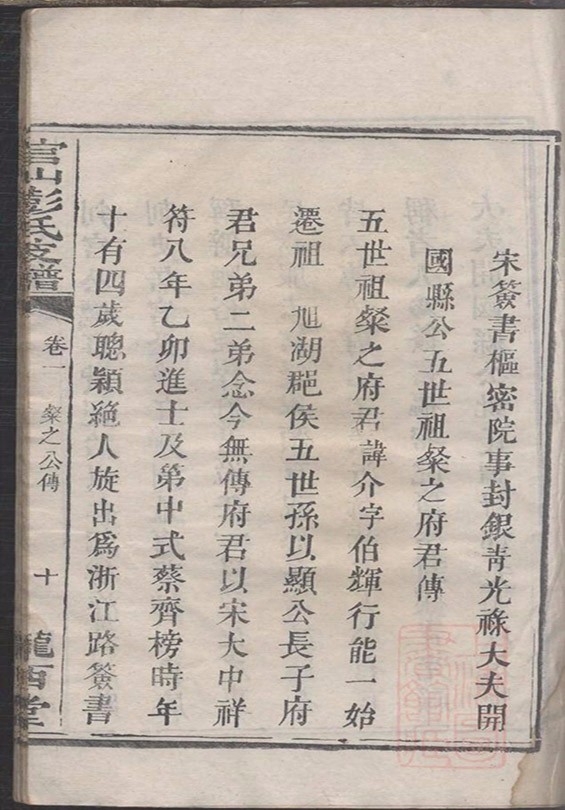 宋簽書樞密院事封銀青光祿大夫開
國縣公五世祖粲之府君傳
五世祖粲之府君諱介字伯輝行能一始
遷祖 旭湖郡侯五世孫以顯公長子府
君兄弟二弟念今無傳府君以宋大中祥
符八年乙卯進士及第中式蔡齊榜時年
十有四歲聰穎絶人旋出爲浙江路簽書
官山彭氏支譜
卷一 粲之公傳
十
隴西堂